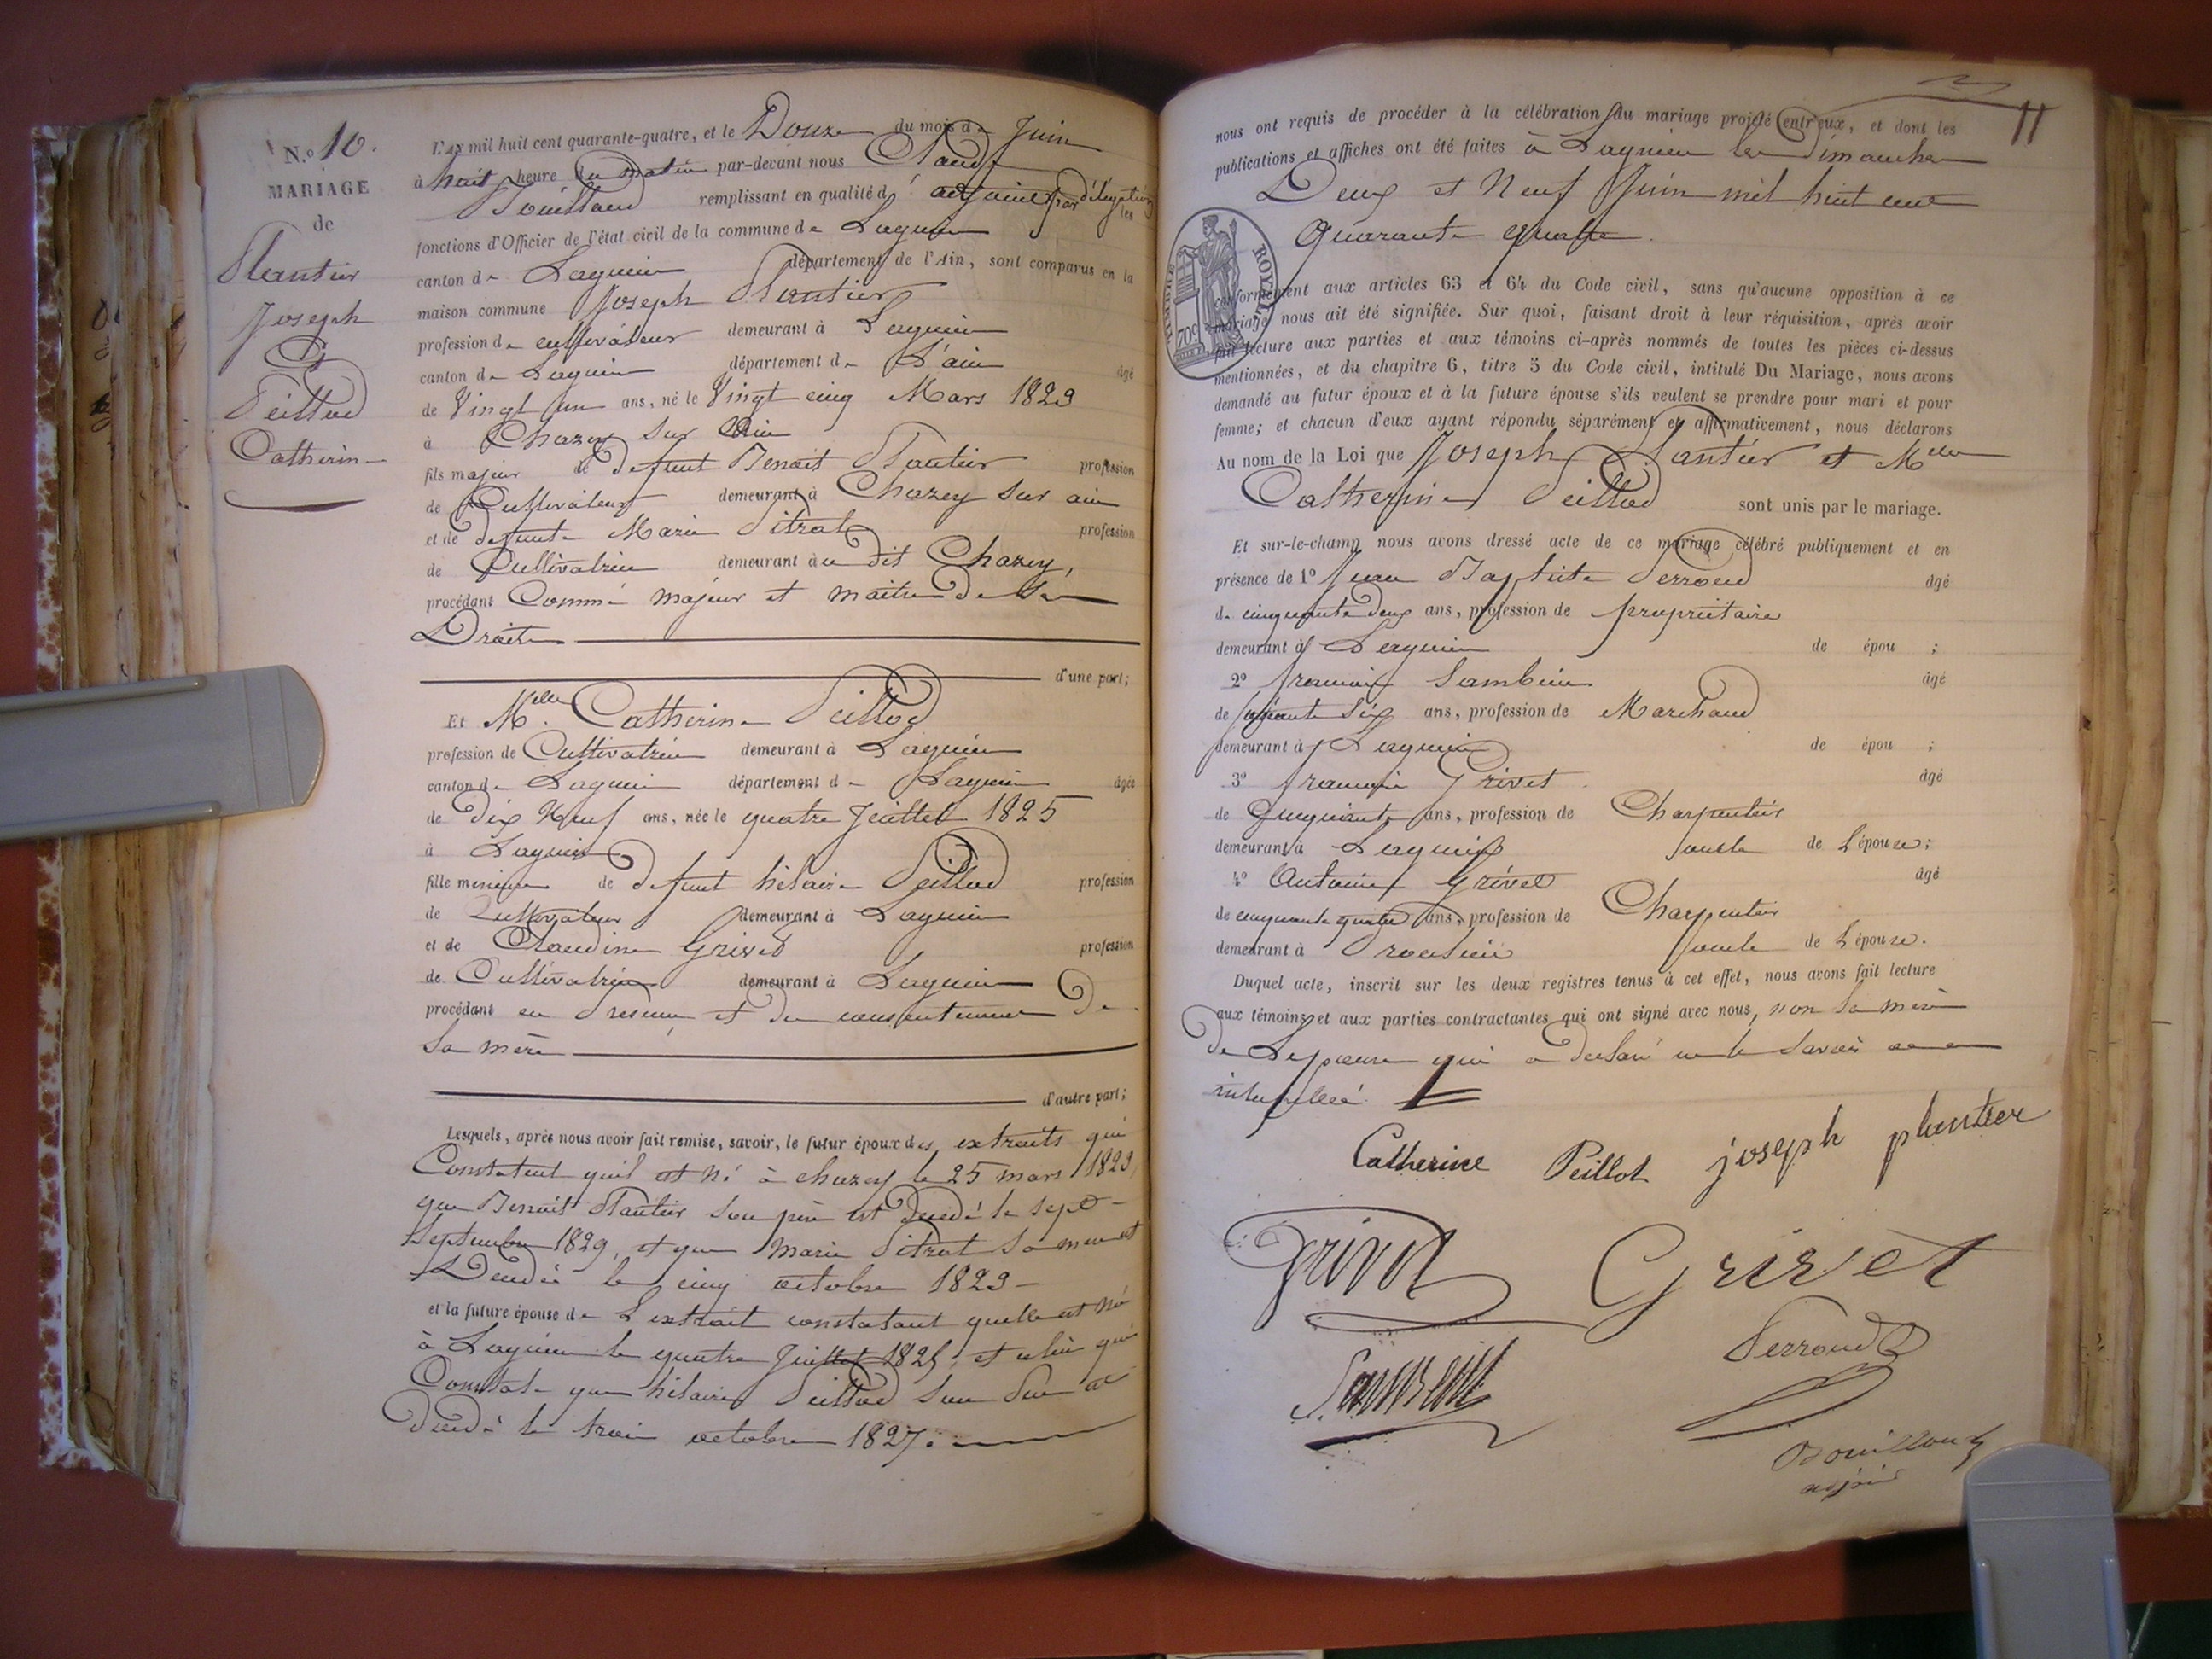 N.º 10.
MARIAGE
de
Plantier
Joseph
&
Peillod
Catherine
L'an mil huit cent quarante-quatre, et le Douze du mois de Juin
à huit heure du matin par-devant nous Claude
Bouilloud remplissant en qualité d' adjoint par délégation les
fonctions d'Officier de l'état civil de la commune de Lagnieu
canton de Lagnieu département de l'Ain, sont comparus en la
maison commune Joseph Plantier
profession de cultivateur demeurant à Lagnieu
canton de Lagnieu département de L'ain âgé
de Vingt un ans, né le Vingt cinq Mars 1823
à Chazey sur Ain
fils majeur de defunt Benoit Plantier profession
de Cultivateur demeurant à Chazey sur ain
et de defunte Marie Pitrat profession
de Cultivatrice demeurant au dit Chazey,
procédant Comme majeur et maitre de ses
Droits
d'une part;
Et Melle Catherine Peillod
profession de Cultivatrice demeurant à Lagnieu
canton de Lagnieu département de Lagnieu âgée
de Dix Neuf ans, née le quatre Juillet 1825
à Lagnieu
fille mineure de defunt hilaire Peillod profession
de Cultivateur demeurant à Lagnieu
et de Claudine Grivet profession
de Cultivatrice demeurant à Lagnieu
procédant en Presence et du consentement De
Sa mère
d'autre part;
Lesquels, après nous avoir fait remise, savoir, le futur époux des extraits qui
Constatent qu'il est né à chazey le 25 mars 1823,
que Benoit Plantier son père est Decedé le sept
Septembre 1829, et que Marie Pitrat sa mere est
Decedée le cinq octobre 1829
et la future épouse de L'extrait constatant quelle est né
à Lagnieu le quatre Juillet 1825, et celui qui
Constate que hilaire Peillod son Pere est
decedé le trois octobre 1827.
11
nous ont requis de procéder à la célébration du mariage projeté entr'eux, et dont les
publications et affiches ont été faites à Lagnieu les Dimanche
Deux et Neuf Juin mil huit cent
Quarante quatre.
TIMBRE ROYAL
70c
conformément aux articles 63 et 64 du Code civil, sans qu'aucune opposition à ce
mariage nous ait été signifiée. Sur quoi, faisant droit à leur réquisition, après avoir
fait lecture aux parties et aux témoins ci-après nommés de toutes les pièces ci-dessus
mentionnées, et du chapitre 6, titre 5 du Code civil, intitulé Du Mariage, nous avons
demandé au futur époux et à la future épouse s'ils veulent se prendre pour mari et pour
femme; et chacun d'eux ayant répondu séparément et affirmativement, nous déclarons
Au nom de la Loi que Joseph Plantier et Melle
Catherine Peillod sont unis par le mariage.
Et sur-le-champ nous avons dressé acte de ce mariage célébré publiquement et en
présence de 1º Jean Baptiste Perroud âgé
de cinquante deux ans, profession de propriétaire
demeurant à Lagnieu de épou ;
2º francois Sambein âgé
de soixante six ans, profession de Marchand
demeurant à Lagnieu de épou ;
3º francois Grivet âgé
de Cinquante ans, profession de Charpentier
demeurant à Lagnieu oncle de L'épouse;
4º Antoine Grivet âgé
de cinquante quatre ans, profession de Charpentier
demeurant à oncle de L'épouse.
Duquel acte, inscrit sur les deux registres tenus à cet effet, nous avons fait lecture
aux témoins et aux parties contractantes qui ont signé avec nous, non La mère
De Lepouse qui a declaré ne le savoir
interpellée
Catherine Peillot joseph plantier
Grivet Grivet
Perroud
Sambein
Bouilloud
adjoint